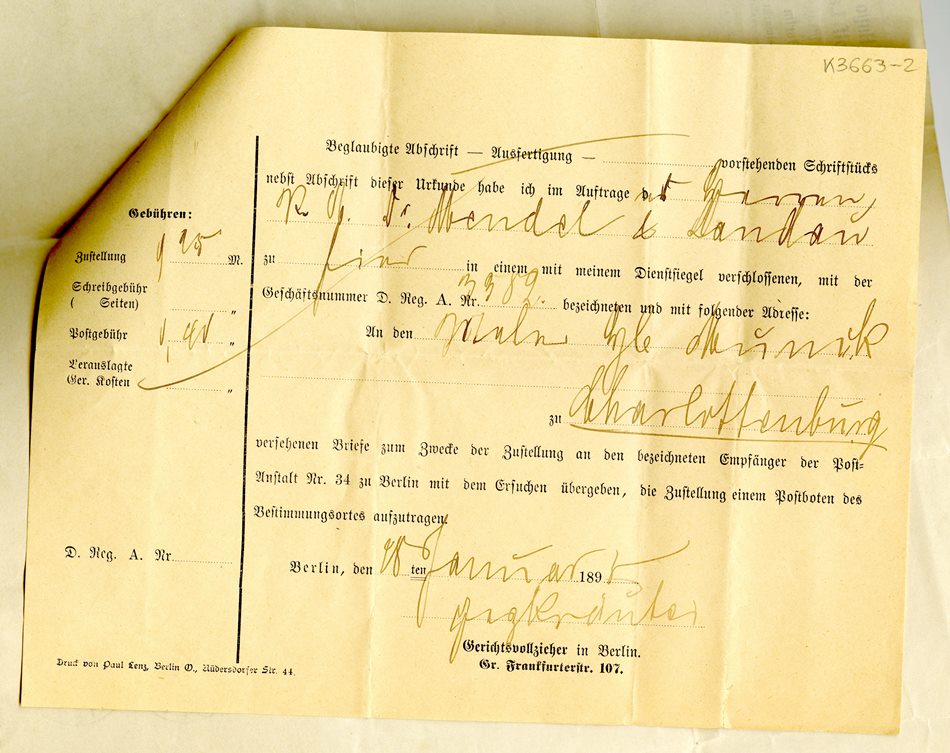 K3663-2
Beglaubigte Abschrift — Ausfertigung — vorstehenden Schriftstücks
nebst Abschrift dieser Urkunde habe ich im Auftrage des Herren
R. A. Dr. Mendel & Landau
zu hier in einem mit meinem Dienstsiegel verschlossenen, mit der
Geschäftsnummer D. Reg. A. Nr. 3389. bezeichneten und mit folgender Adresse:
An den Maler Munck
zu Charlottenburg
versehenen Briefe zum Zwecke der Zustellung an den bezeichneten Empfänger der Post-
Anstalt Nr. 34 zu Berlin mit dem Ersuchen übergeben, die Zustellung einem Postboten des
Bestimmungsortes aufzutragen.
Berlin, den ten Januar 1895
Gerichtsvollzieher in Berlin.
Gr. Frankfurterstr. 107.
Gebühren:
Zustellung M.
Schreibgebühr
( Seiten) "
Postgebühr "
Verauslagte
Ger. Kosten "
D. Reg. A. Nr.
Druck von Paul Lenz, Berlin O., Rüdersdorfer Str. 44.